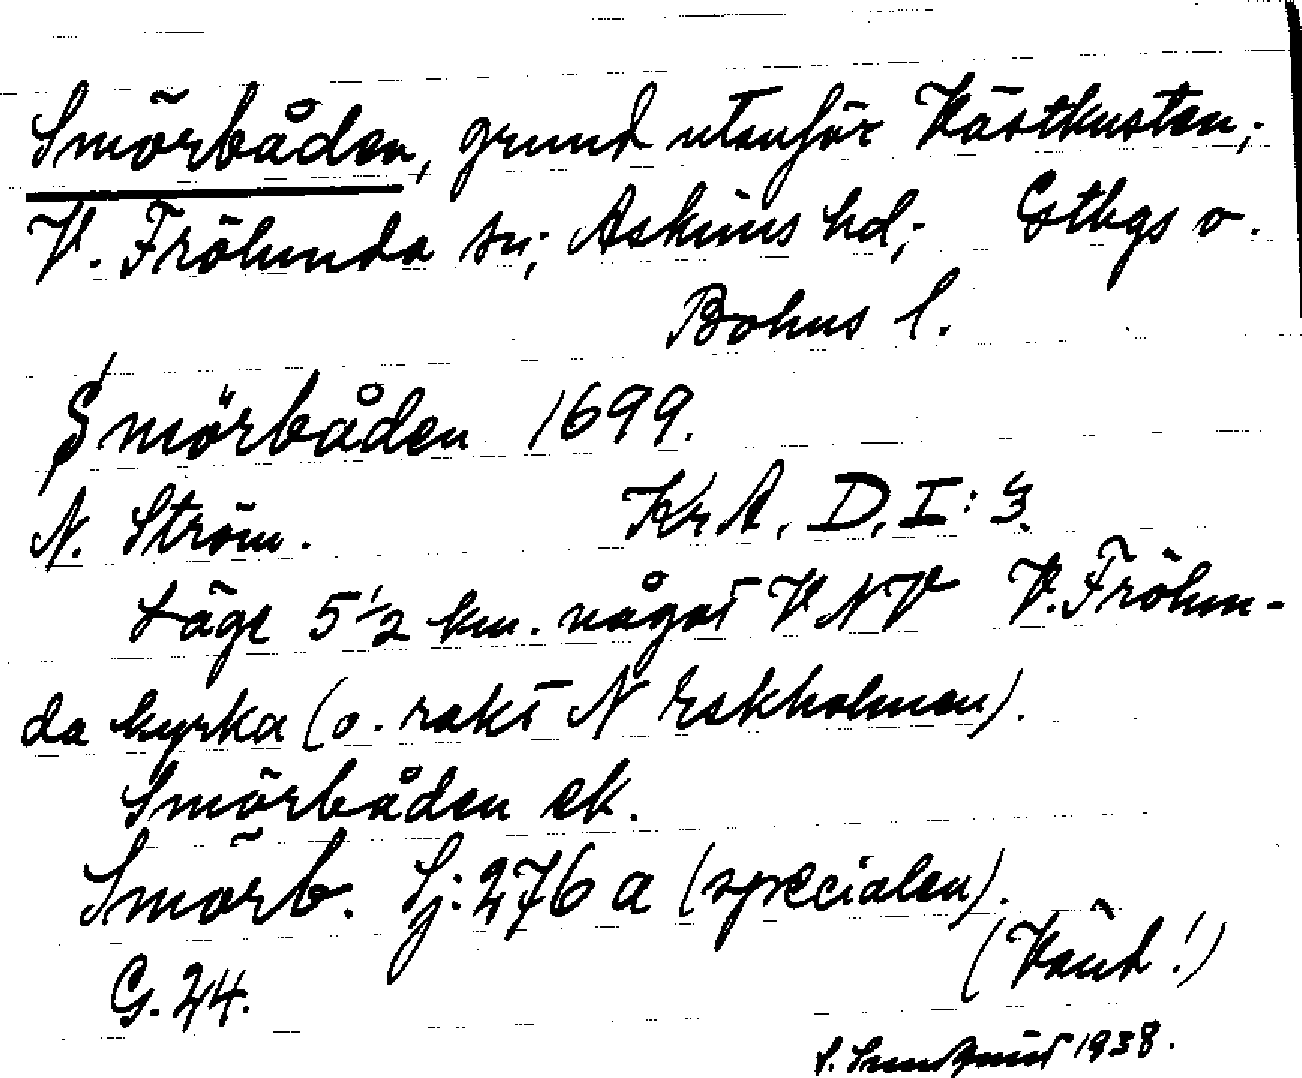 Smörbåden, grund utanför Västkusten;
V. Frölunda sn; Askims hd; Gtbgs o.
Bohus l.
Smörbåden 1699.
N. Ström. KrA, D, I: 3.
Läge 5 1/2 km. något VNV V. Frölun-
da kyrka (o. rakt N Eskholmen).
Smörbåden ek.
Smörb. Sj: 276 a (specialen).
G. 24. (Vänd!)
1938.